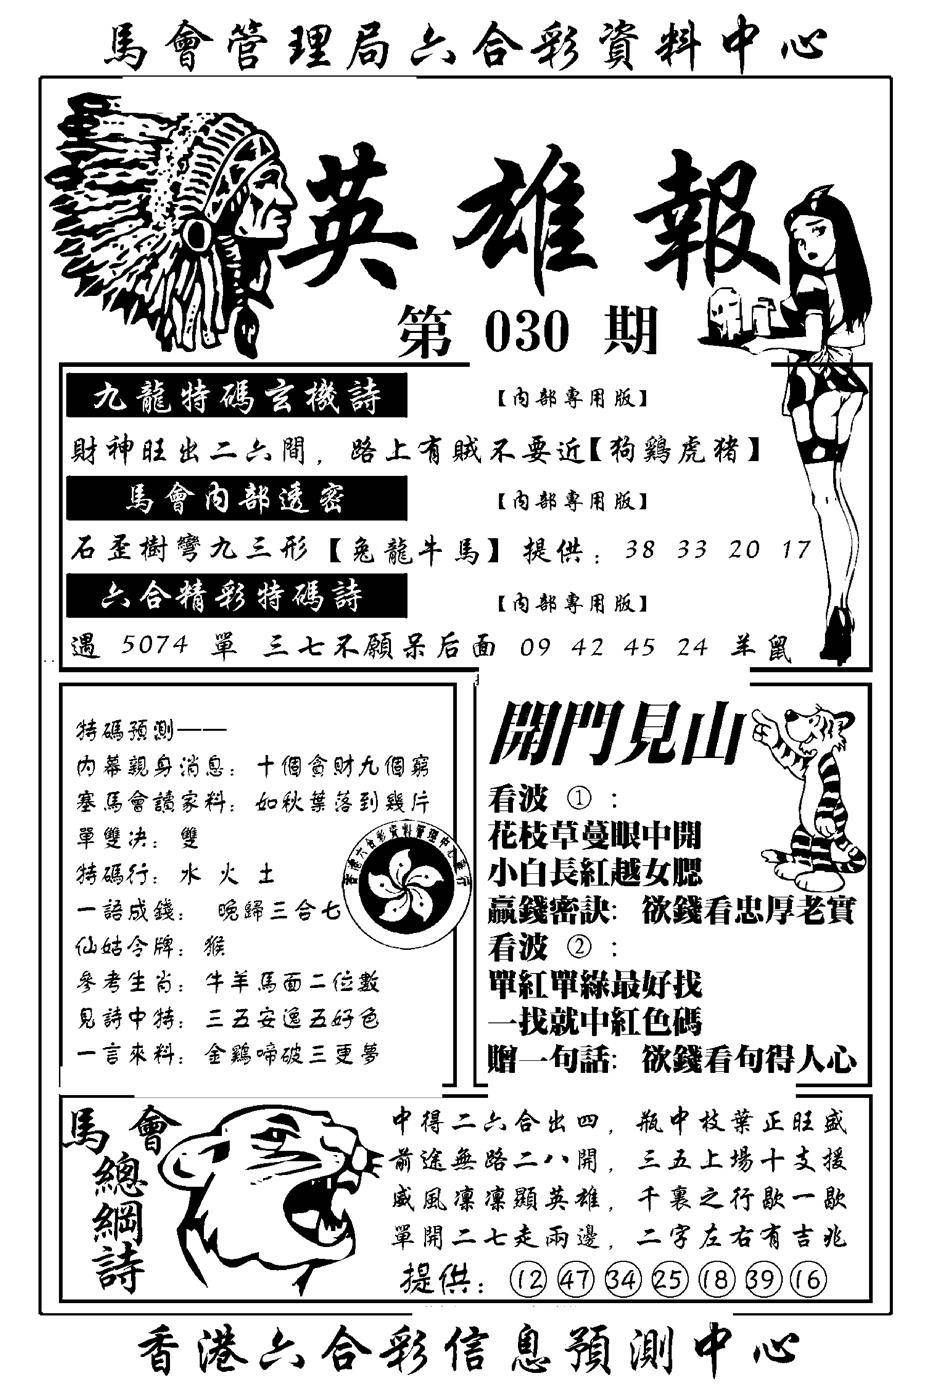 馬會管理局六合彩資料中心
英雄報
第 030 期
九龍特碼玄機詩 【內部專用版】
財神旺出二六間，路上有賊不要近【狗鷄虎猪】
馬會內部透密 【內部專用版】
石歪樹彎九三形【兔龍牛馬】提供：38 33 20 17
六合精彩特碼詩 【內部專用版】
遇 5074 單 三七不願呆后面 09 42 45 24 羊鼠
特碼預測——
內幕親身消息：十個貪財九個窮
塞馬會讀家料：如秋葉落到幾片
單雙决：雙
特碼行：水 火 土
一語成錢： 晚歸三合七
仙姑令牌：猴
參考生肖：牛羊馬面二位數
見詩中特：三五安逸五好色
一言來料：金鷄啼破三更夢
開門見山
看波 ①：
花枝草蔓眼中開
小白長紅越女腮
贏錢密訣：欲錢看忠厚老實
看波 ②：
單紅單綠最好找
一找就中紅色碼
贈一句話：欲錢看句得人心
馬會
總綱詩
中得二六合出四，瓶中枝葉正旺盛
前途無路二八開，三五上場十支援
威風凛凛顯英雄，千裏之行歇一歇
單開二七走兩邊，二字左右有吉兆
提供：⑫ ㊼ ㉞ ㉕ ⑱ ㊴ ⑯
香港六合彩信息預測中心